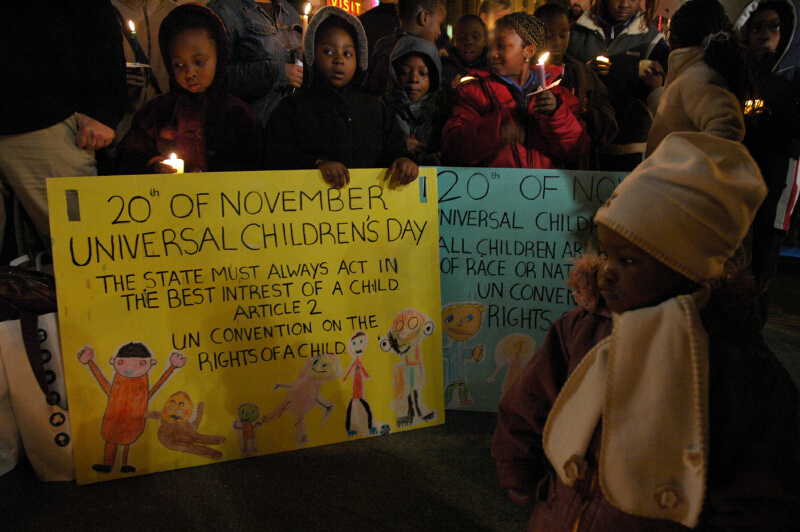 VISIT
20th OF NOVEMBER
UNIVERSAL CHILDREN'S DAY
THE STATE MUST ALWAYS ACT IN
THE BEST INTREST OF A CHILD
ARTICLE 2
UN CONVENTION ON THE
RIGHTS OF A CHILD
20th OF NOV
UNIVERSAL CHILD
ALL CHILDREN AR
OF RACE OR NAT
UN CONVEN
RIGHTS OF